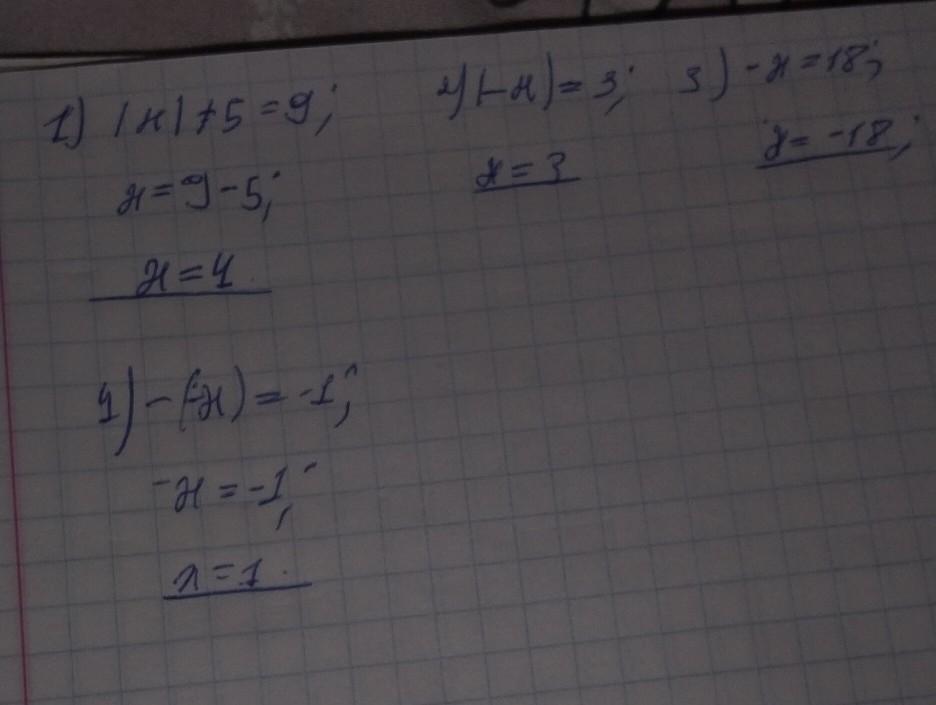 1) |x|+5=9;
x=9-5;
x=4.
2) |-x|=3;
x=3
3) -x=18;
x=-18;
4) -(-x)=-1;
-x=-1;
x=1.